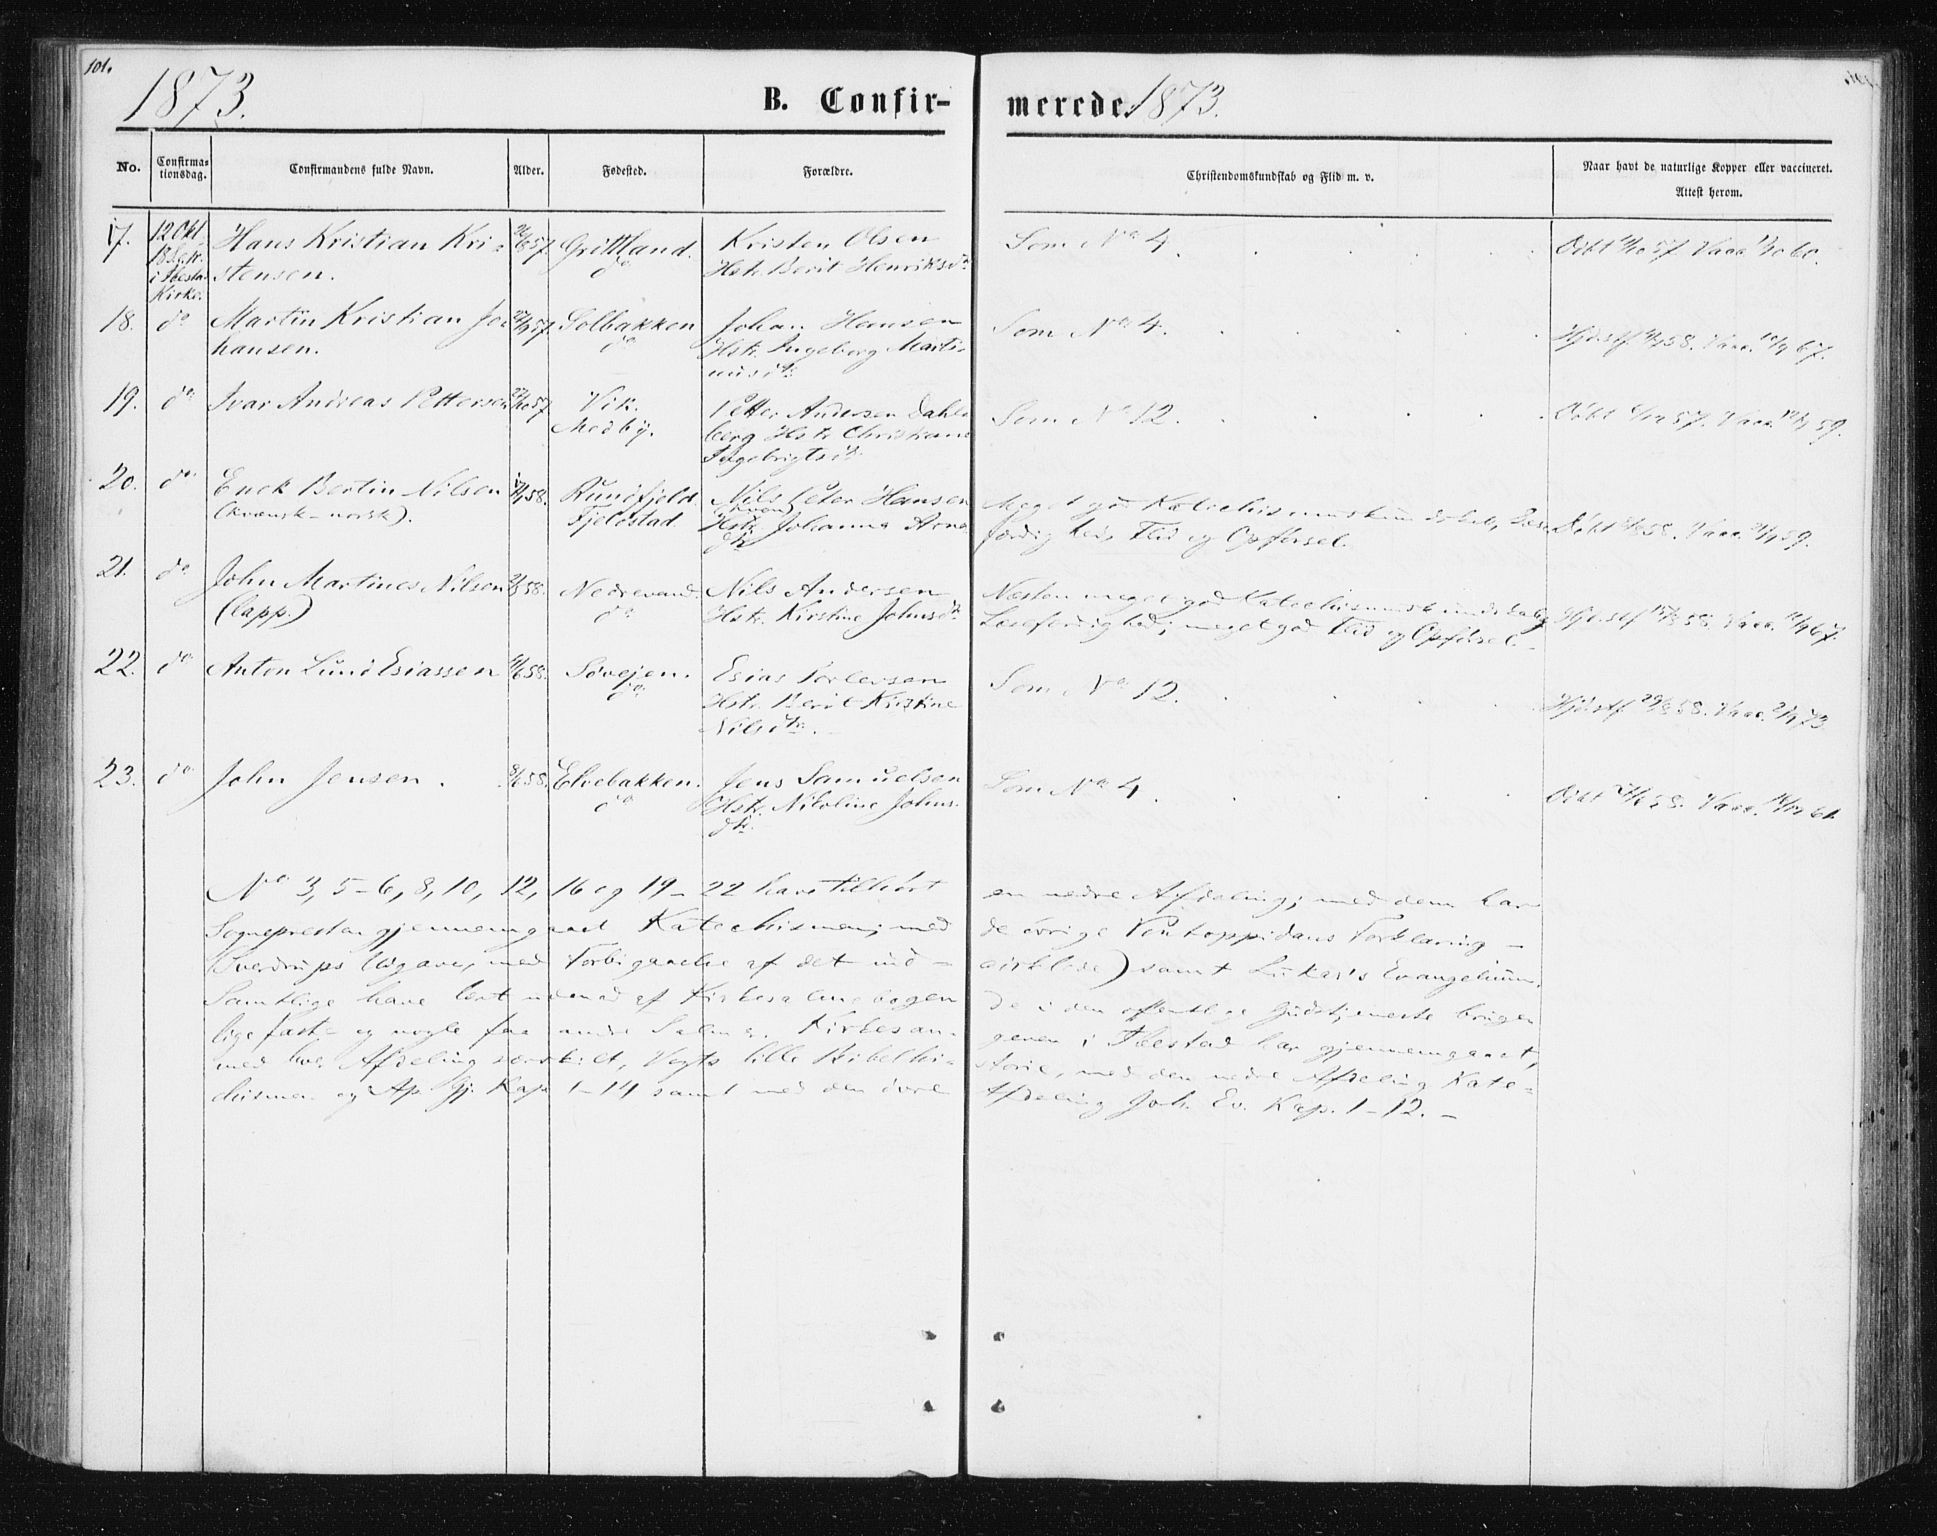 101.
1873.
B. Confir-
merede.
1873.
No.
Confirma-
tionsdag.
Confirmandens fulde Navn.
Alder.
Fødested.
Forældre.
Christendomskundskab og Flid m. v.
Naar havt de naturlige Kopper eller vaccineret.
Attest herom.
17.
12 Okt.
i Ibestad
Kirke.
Hans Kristian Kri-
stensen.
57.
Grittland.
do
Kristen Olsen
Hstr. Berit Henriksdr
Som No 4.
Døbt 57. Vacc. 60.
18.
do
Martin Kristian Jo-
hansen.
57.
Solbakken
do
Johan Hansen
Hstr. Ingeborg Marti-
nusdtr.
Som No 4.
Hjdøbt 58. Vacc. 67.
19.
do
Ivar Andreas Pettersen
57
Vik.
Medby.
Petter Andersen Dahl-
berg Hstr Christiane
Ingebrigtsdtr
Som No 12.
Døbt 57. Vacc. 59.
20.
do
Enok Bertin Nilsen
(kvænsk-norsk).
58.
Rundfjeld
Fjeldstad
Nils Peter Hansen
(kvæn)
Hstr. Johanna Arne-
dtr
Meget god Katechismuskundskab, Læse-
færdighed, Flid og Opførsel.
Døbt 58. Vacc. 59.
21.
do
John Martines Nilsen
(lapp.)
58.
Nedrevand.
do
Nils Andersen
Hstr. Kirstine Johnsdtr.
Næsten meget god Katechismuskundskab,
Læsefærdighed; meget god Flid og Opførsel.
58. Vacc. 67.
22.
do
Anton Lund Esiassen
58.
Søvejen.
do
Esias Torlersen
Hstr. Berit Kirstine
Nilsdtr.
Som No 12.
58. Vacc. 73.
23.
do
John Jensen.
58.
Elvebakken.
do
Jens Samuelsen
Hstr. Nikoline Johns-
dtr.
Som No 4.
Døbt 58. Vacc. 61.
No 3, 5-6, 8, 10, 12, 16 og 19-22 have tilhørt
en nedre Afdeling; med dem har
Sognepresten gjennemgaaet Katechismen; med
de øvrige Pontoppidans Forklaring
(Sverdrups Udgave, med Forbigaaelse af det ind-
cirklede) samt Lukas's Evangelium.
Samtlige have lært udenad af Kirkesalmebogen
de i den offentlige Gudstjeneste brugen-
lige Fast- og nogle faa andre Salmer. Kirkesan-
geren i Ibestad har gjennemgaaet,
med hver Afdeling særskilt, Vogts lille Bibelhi-
storie, med den nedre Afdeling Kate-
chismen og Ap. Gj. Kap 1-14 samt med den øvre
Afdeling Joh. Ev. Kap. 1-12.